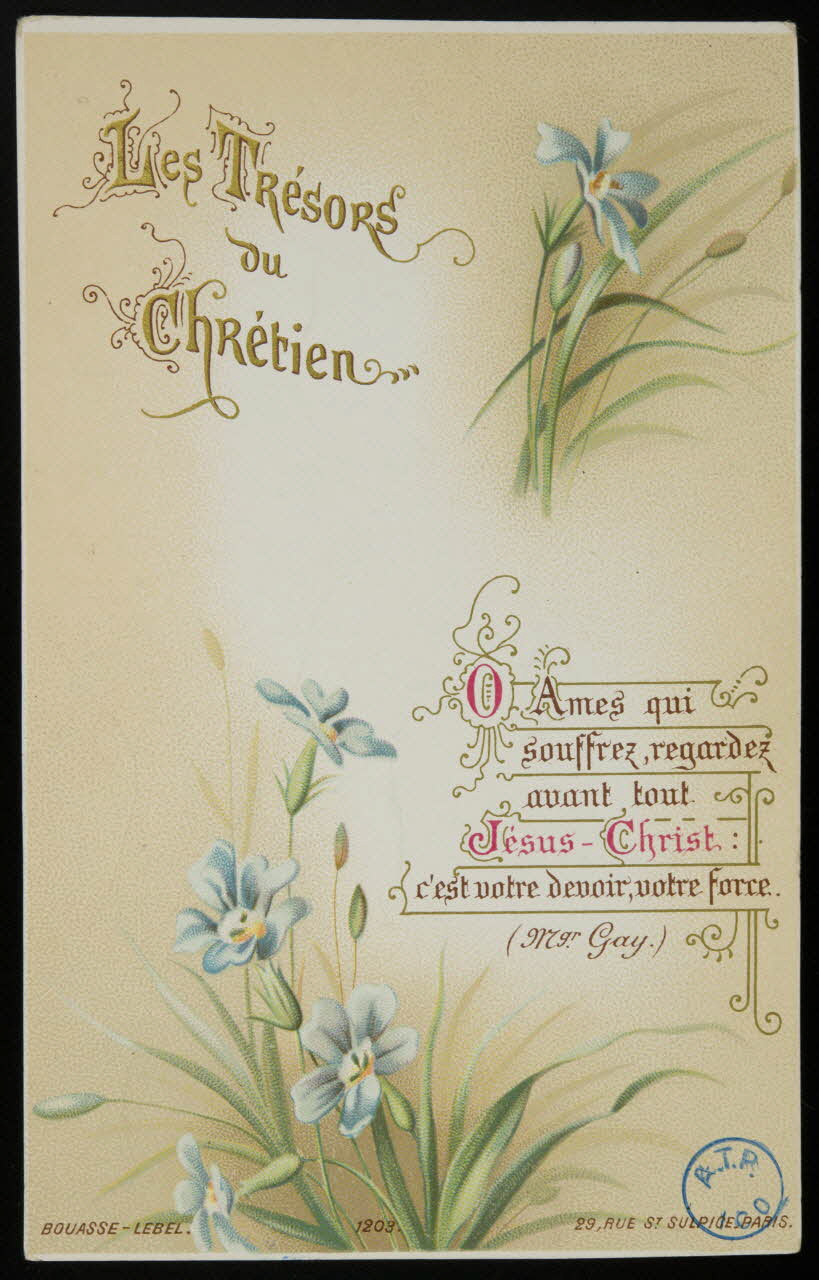 Les Trésors
du
Chrétien
O Ames qui
souffrez, regardez
avant tout
Jésus-Christ :
c'est votre devoir, votre force.
(Mgr Gay.)
A.T.P.
BOUASSE-LEBEL.
1203.
29, RUE ST SULPICE, PARIS.